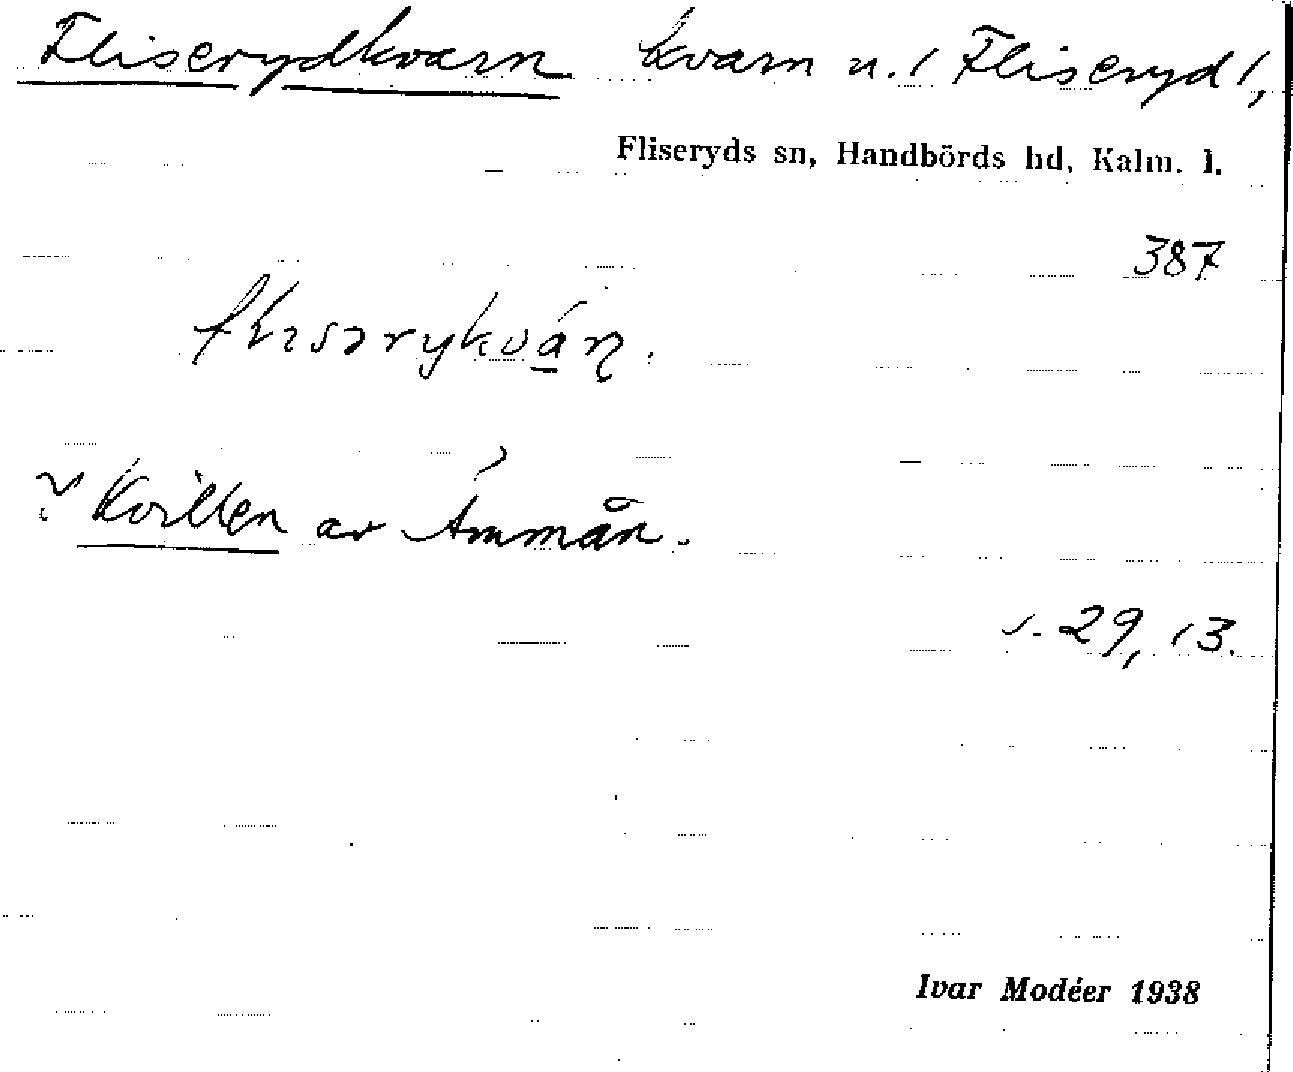 Fliserydkvarn kvarn u. / Fliseryd /,
Fliseryds sn, Handbörds hd, Kalm. l.
387
flisərykvárn.
Kvillen av Åmmån.
s. 29, 13.
Ivar Modéer 1938